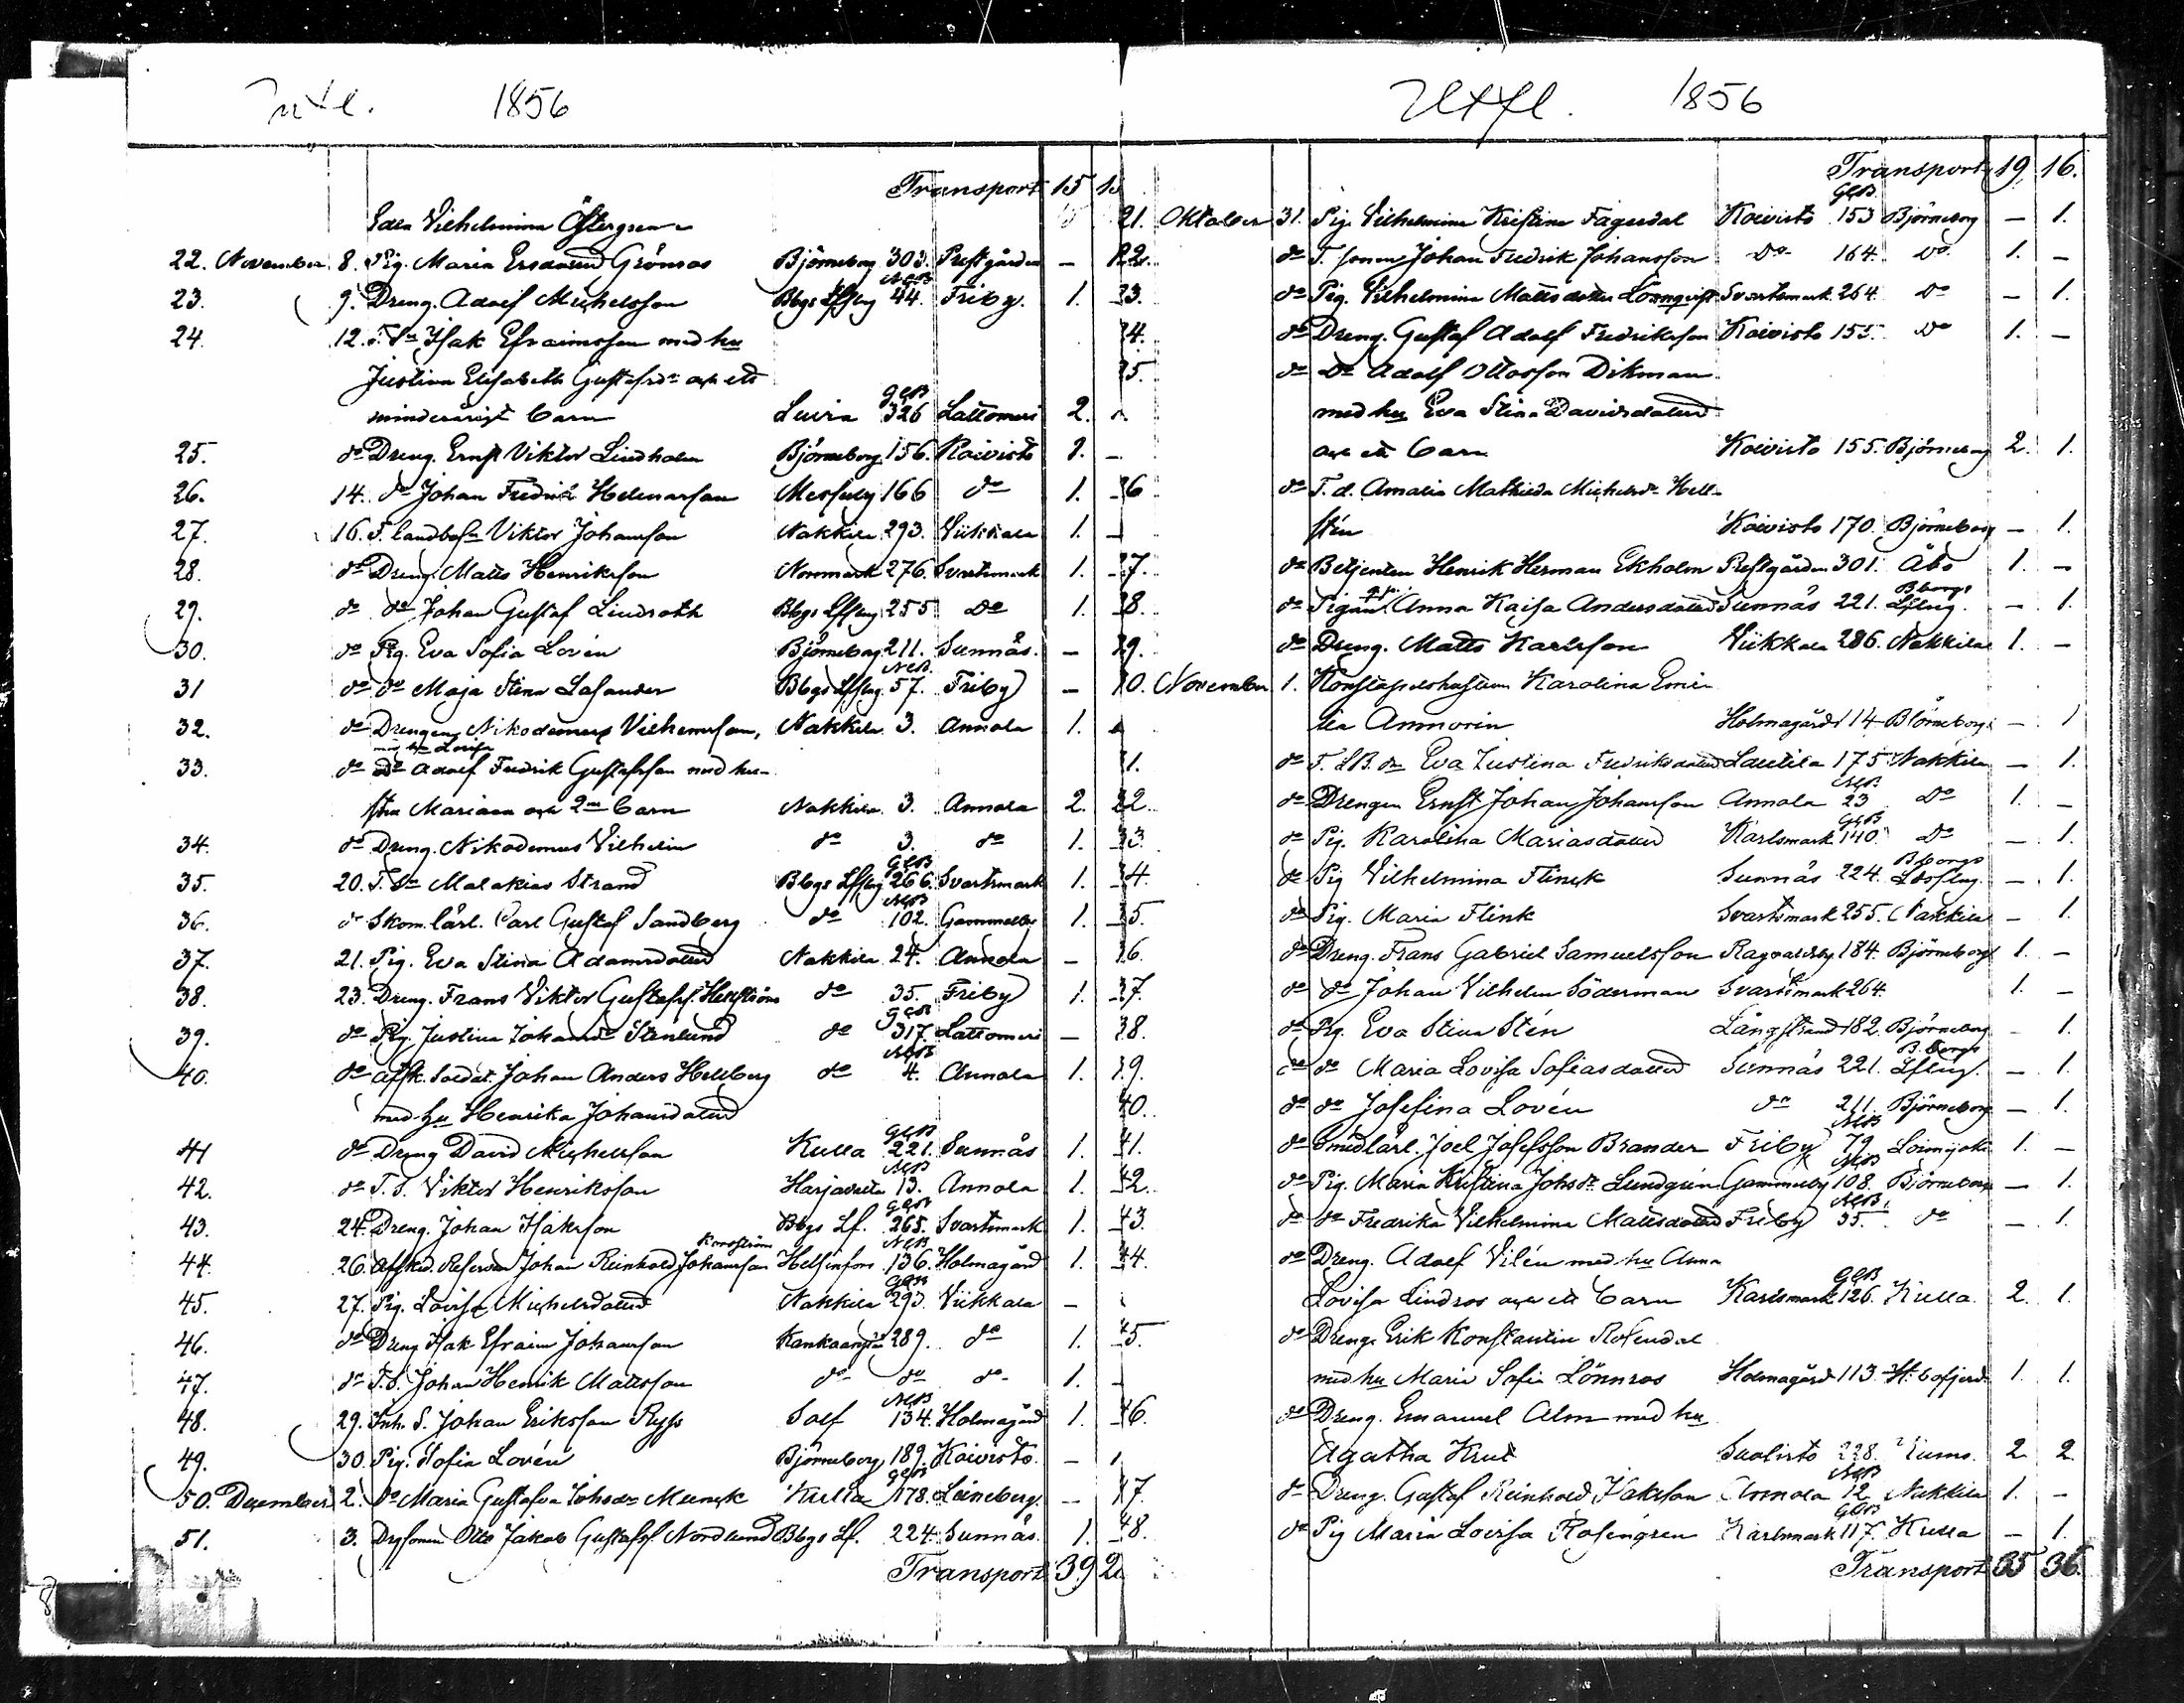 InFl. 1856
Transport 15
Vilhelmina Östergren
22. November 8. Pig. Maria Grönroos Björneborg 303. Prestgården —
23. 9. Dreng. Adolf Michelsson Bbgs Lfslg NLB 44. Friby. 1.
24. 12. T. Sn Isak Efraimsson med hu
Justina Elisabeth Gustafsdr och ett
minderårigt barn Luvia GLB 326 Lattomeri 2.
25. do Dreng. Ernst Viktor Lindholm Björneborg 156. Koivisto 1. —
26. 14. do Johan Fredrik Helmarsson 166 do 1.
27. 16. T. landbosn Viktor Johansson Nakkila 293. Viikkala 1. —
28. do Dreng. Matts Henriksson Norrmark 276. Svartsmark 1.
29. do do Johan Gustaf Lindroth Bbgs Lfslg 255 Do 1.
30. do Pig. Eva Sofia Lovén Björneborg 211. Sunnäs. —
31 do do Maja Stina Lasander Bbgs Lfslg. NLB 57. Friby —
32. do Drengen Nikodemus Vilhelmsson, Nakkila 3. Annola 1.
33. do do Adolf Fredrik Gustafsson med hu-
stru Mariana och 2ne barn Nakkila 3. Annola 2.
34. do Dreng. Nikodemus Vilhelm do 3. do 1.
35. 20. T. Sn Malakias Strand Bbgs Lfslg GLB 266. Svartsmark 1.
36. do Skom. lärl. Carl Gustaf Sandberg do NLB 102. Gammelby 1.
37. 21. Pig. Eva Stina Adamsdotter Nakkila 24. Annola —
38. 23. Dreng. Frans Viktor Gustafss. Hellström do 35. Friby 1.
39. do Pig. Justina Johansdr Stenlund do GLB 317. Lattomeri —
40. do Afsk. Soldat. Johan Anders Hellberg do NLB 4. Annola 1.
med hu Henrika Johansdotter
41 do Dreng David Michelsson Kulla GLB 221. Sunnäs 1.
42. do T. S. Viktor Henriksson Harjavalta NLB 13. Annola 1.
43. 24. Dreng. Johan Isaksson Bbgs Lf. GLB 265. Svartsmark 1.
44. 26. Afsked. Johan Reinhold Johansson Helsinfors NLB 136. Holmagård 1.
45. 27. Pig. Lovisa Michelsdotter Nakkila GLB 293. Viikkala —
46. do Dreng Isak Efraim Johansson 289. do 1.
47. do T. S. Johan Henrik Mattsson do do do 1.
48. 29. Inh. S. Johan Eriksson Ryss Solf NLB 134. Holmagård 1.
49. 30. Pig. Sofia Lovén Björneborg 189. Koivisto. —
50. December 2. do Maria Gustafva Johsdr Munck Kulla GLB 178. —
51. 3. Otto Jakob Gustafss. Nordlund Bbgs Lf. 224. Sunnäs. 1.
Transport 39
Utfl. 1856
Transport 19. 16.
21. Oktober 31. Pig. Vilhelmina Kristina Fagerdal Koivisto GLB 153 Björneborg — 1.
22. do T. sonen Johan Fredrik Johansson Do 164. Do. 1. —
23. do Pig. Vilhelmina Mattsdotter Lönnqvist Svartsmark 264. Do — 1.
24. do Dreng. Gustaf Adolf Fredriksson Koivisto 155. Do 1. —
25. do Do Adolf Ottosson Dikman
med hu Eva Stina Davidsdotter
och ett barn Koivisto 155. Björneborg 2. 1.
26 do T. d. Amalia Mathilda Michelsdr Hell-
stén Koivisto 170. Björneborg — 1.
27. do Betjenten Henrik Herman Ekholm Prestgården 301. Åbo 1. —
28. do Pigan Anna Kajsa Andersdotter Sunnäs 221. Bborgs Lfslg. — 1.
29. do Dreng. Matts Karlsson Viikkala 286. Nakkila 1. —
30. November 1. Konstapelshustrun Karolina Emi-
lia Ammorin Holmagård 114 Björneborg — 1
31. do T. Eva Justina Fredriksdotter Lautila 175 Nakkila — 1.
32. do Drengen Ernst Johan Johansson Annola NLB 23 do 1. —
33. do Pig. Karolina Mariasdotter Karlsmark GLB 140. Do — 1.
34. do Pig Vilhelmina Flinck Sunnäs 224. Bborgs Ldsfslg. — 1.
35. do Pig. Maria Flink Svartsmark 255. Nakkila — 1.
36. do Dreng. Frans Gabriel Samuelsson Ragvaldsby 184. Björneborg 1. —
37. do do Johan Vilhelm Söderman Svartsmark 264. 1. —
38. do Pig. Eva Stina Stén Långstrand 182. Björneborg — 1.
39. do do Maria Lovisa Sofiasdotter Sunnäs 221. B.borgs Lfslg. — 1.
40. do do Josefina Lovén do 211. Björneborg — 1.
41. do Smedlärl. Joel Josefsson Brander Friby NLB 79 Loimijoki 1. —
42. do Pig. Maria Kristina Johsdr Lundgrén Gammelby NLB 108. Björneborg — 1.
43. do do Fredrika Vilhelmina Mattsdotter Friby NLB. 35. do — 1.
44. do Dreng. Adolf Vilén med hu Anna
Lovisa Lindroos och ett barn Karlsmark GLB 126. Kulla. 2. 1.
45. do Dreng. Erik Konstantin Rosendal
med hu Maria Sofia Lönnroos Holmagård 113. H.bofjerd. 1. 1.
46. do Dreng. Emanuel Alm med hu
Agatha Krut Suolisto 228. 2. 2.
47. do Dreng. Gustaf Reinhold Isaksson Annola NLB 12 Nakkila 1. —
48. do Pig Maria Lovisa Rosengren Karlsmark GLB 117. Kulla — 1.
Transport 35 36.